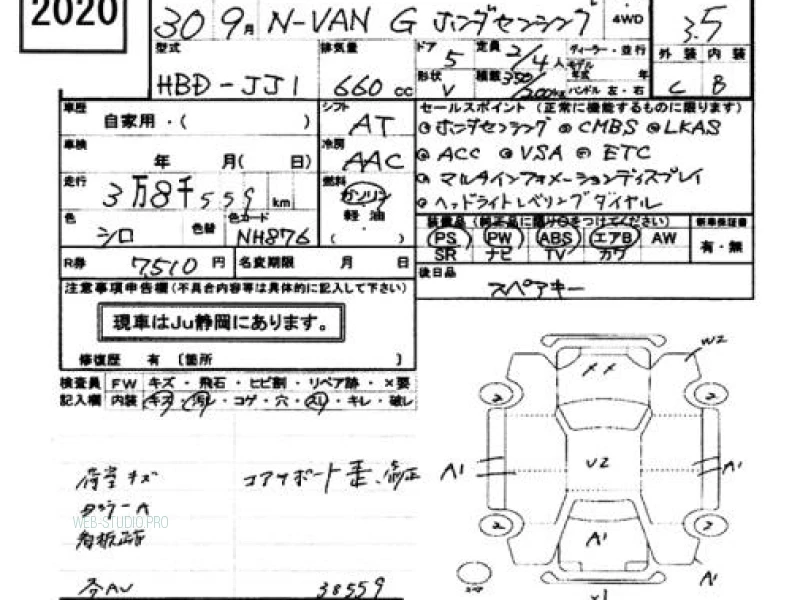 2020
30 9月 N-VAN G ホンダセンシング 4WD 3.5
型式 排気量 ドア 定員 ディーラー・並行 外装 内装
HBD-JJ1 660 cc 5 2/4人 モデル年式 年
形状 V 積載 350/200kg ハンドル 左・右 C B
車歴 自家用・( ) シフト AT
セールスポイント (正常に機能するものに限ります)
ホンダセンシング CMBS LKAS
車検 年 月( 日) 冷房 AAC
ACC VSA ETC
走行 3万8千559 km 燃料 ガソリン 軽油 ( ・ )
マルチインフォメーションディスプレイ
ヘッドライトレベリングダイヤル
色 シロ 色替 色コード NH876
装備品 (純正品に限り○をつけてください) 新車保証書
PS PW ABS エアB AW 有・無
SR ナビ TV カワ
R券 7510 円 名変期限 月 日
後日品 スペアキー
注意事項申告欄 (不具合内容等は具体的に記入して下さい)
現車はJu静岡にあります。
修復歴 有 〔箇所 〕
検査員 FW キズ・飛石・ヒビ割・リペア跡・×要
記入欄 内装 キズ・汚レ・コゲ・穴・スレ・キレ・破レ
荷室キズ コアサポート
WEB-STUDIO PRO
38559
W2
2 2
A1 U2 A1
2 2
A1
A1
X1